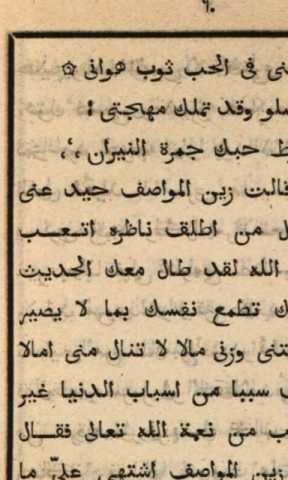 ٩٠
فى الحب ثوب هوانى ۞
سلو وقد تملك مهجتى :
حبك جمرة النيران
قالت زين المواصف حيد عنى
من اطلق ناظره اتعب
الله لقد طال معك الحديث
تطمع نفسك بما لا يصير
وزنى مالا لا تنال منى امالا
سببا من اسباب الدنيا غير
من نعمة الله تعالى فقال
زين المواصف اشتهى علىّ ما